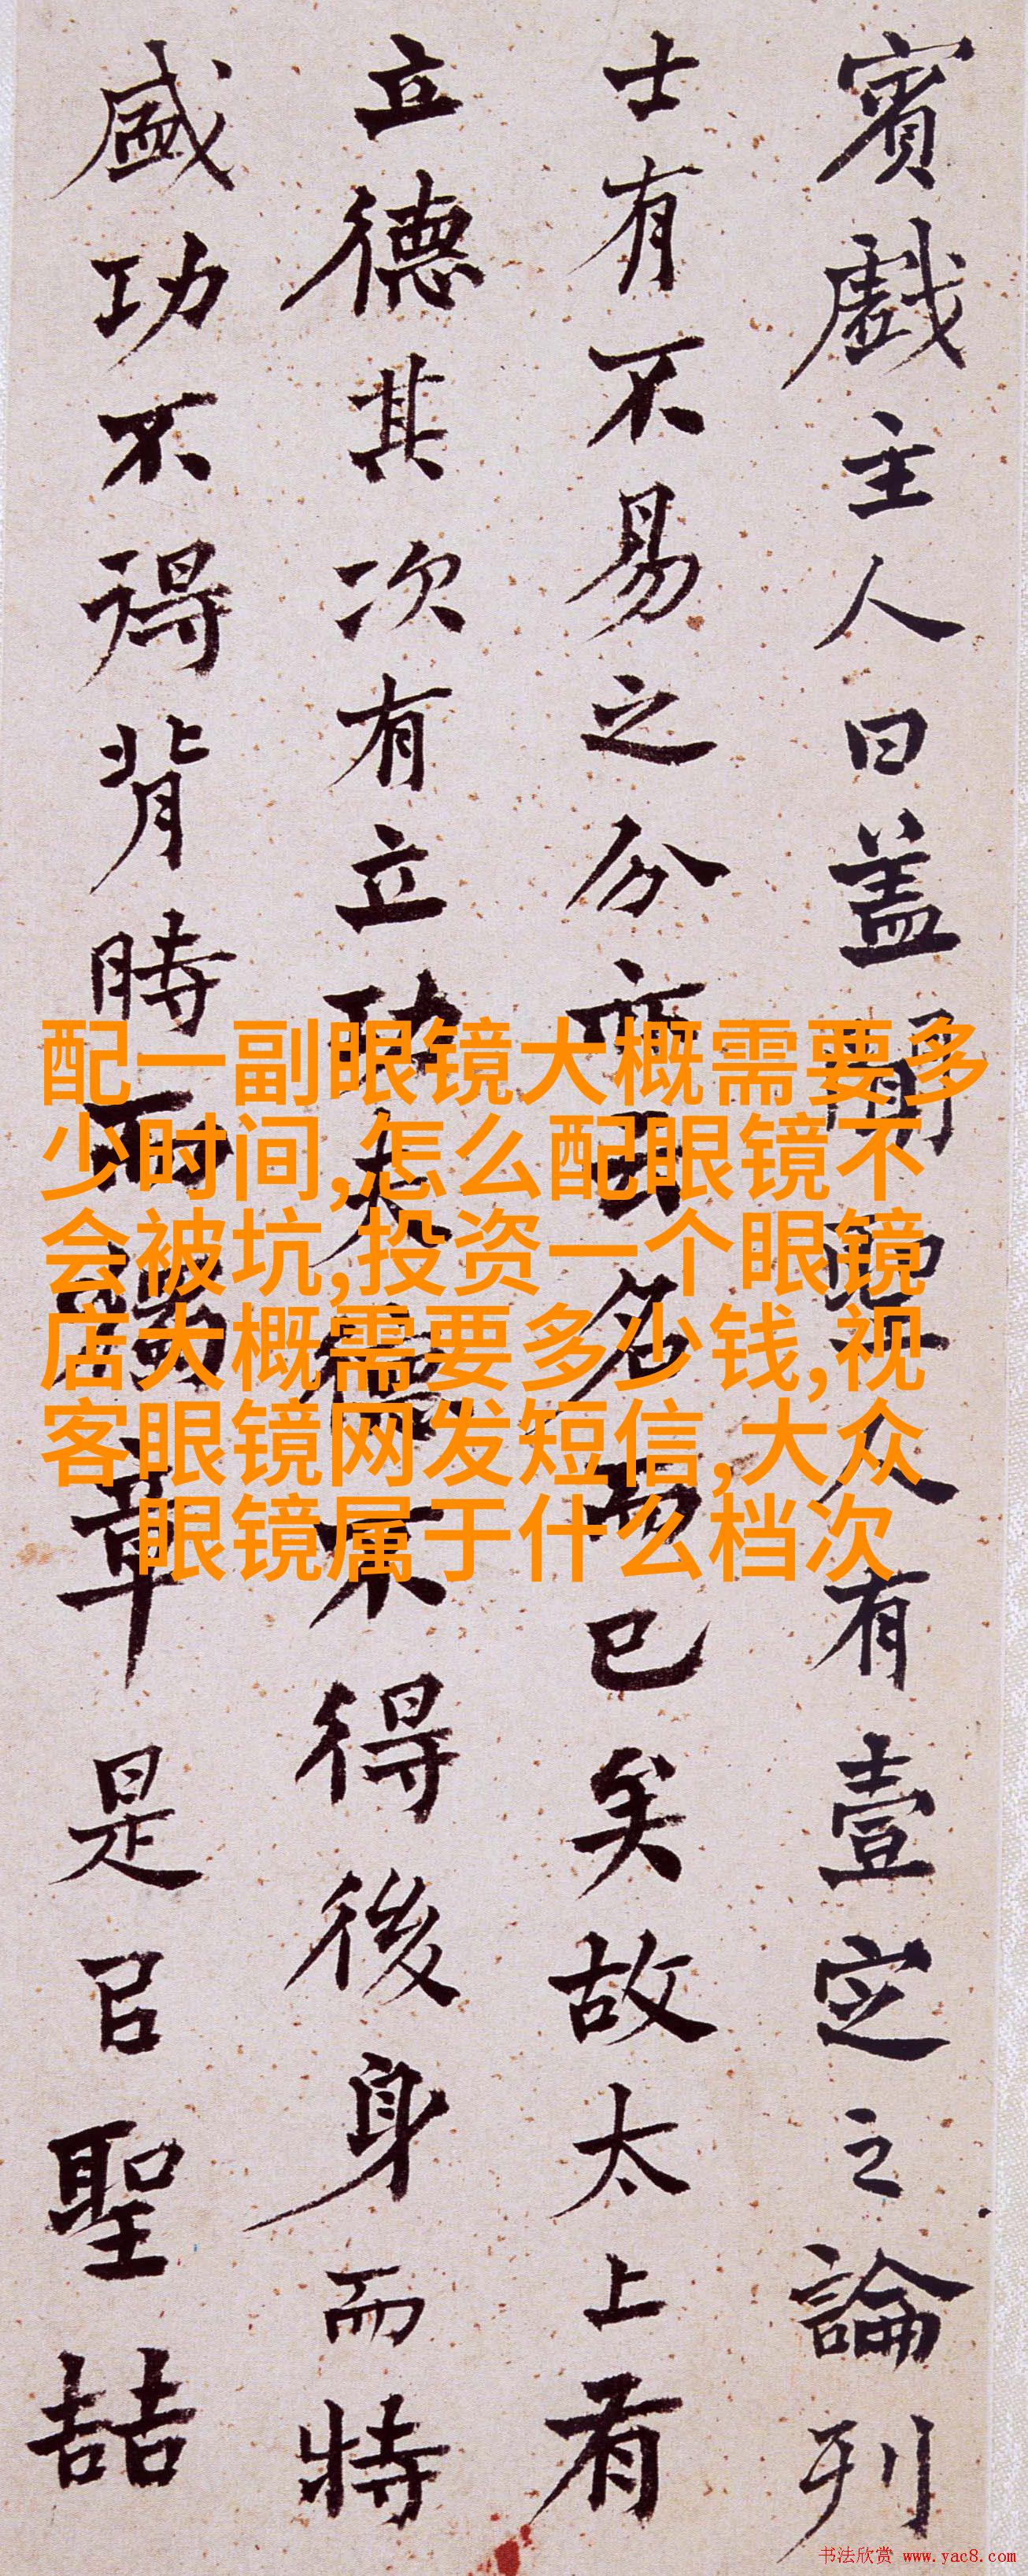 賓戲主人曰蓋聞聖人有壹定之論列
士有不易之分亦云名而已矣故太上有
立德其次有立功夫德不得後身而特
盛功不得背時而獨章是㠯聖喆
配一副眼镜大概需要多
少时间,怎么配眼镜不
会被坑,投资一个眼镜
店大概需要多少钱,视
客眼镜网发短信,大众
眼镜属于什么档次
书法欣赏 www.yac8.com